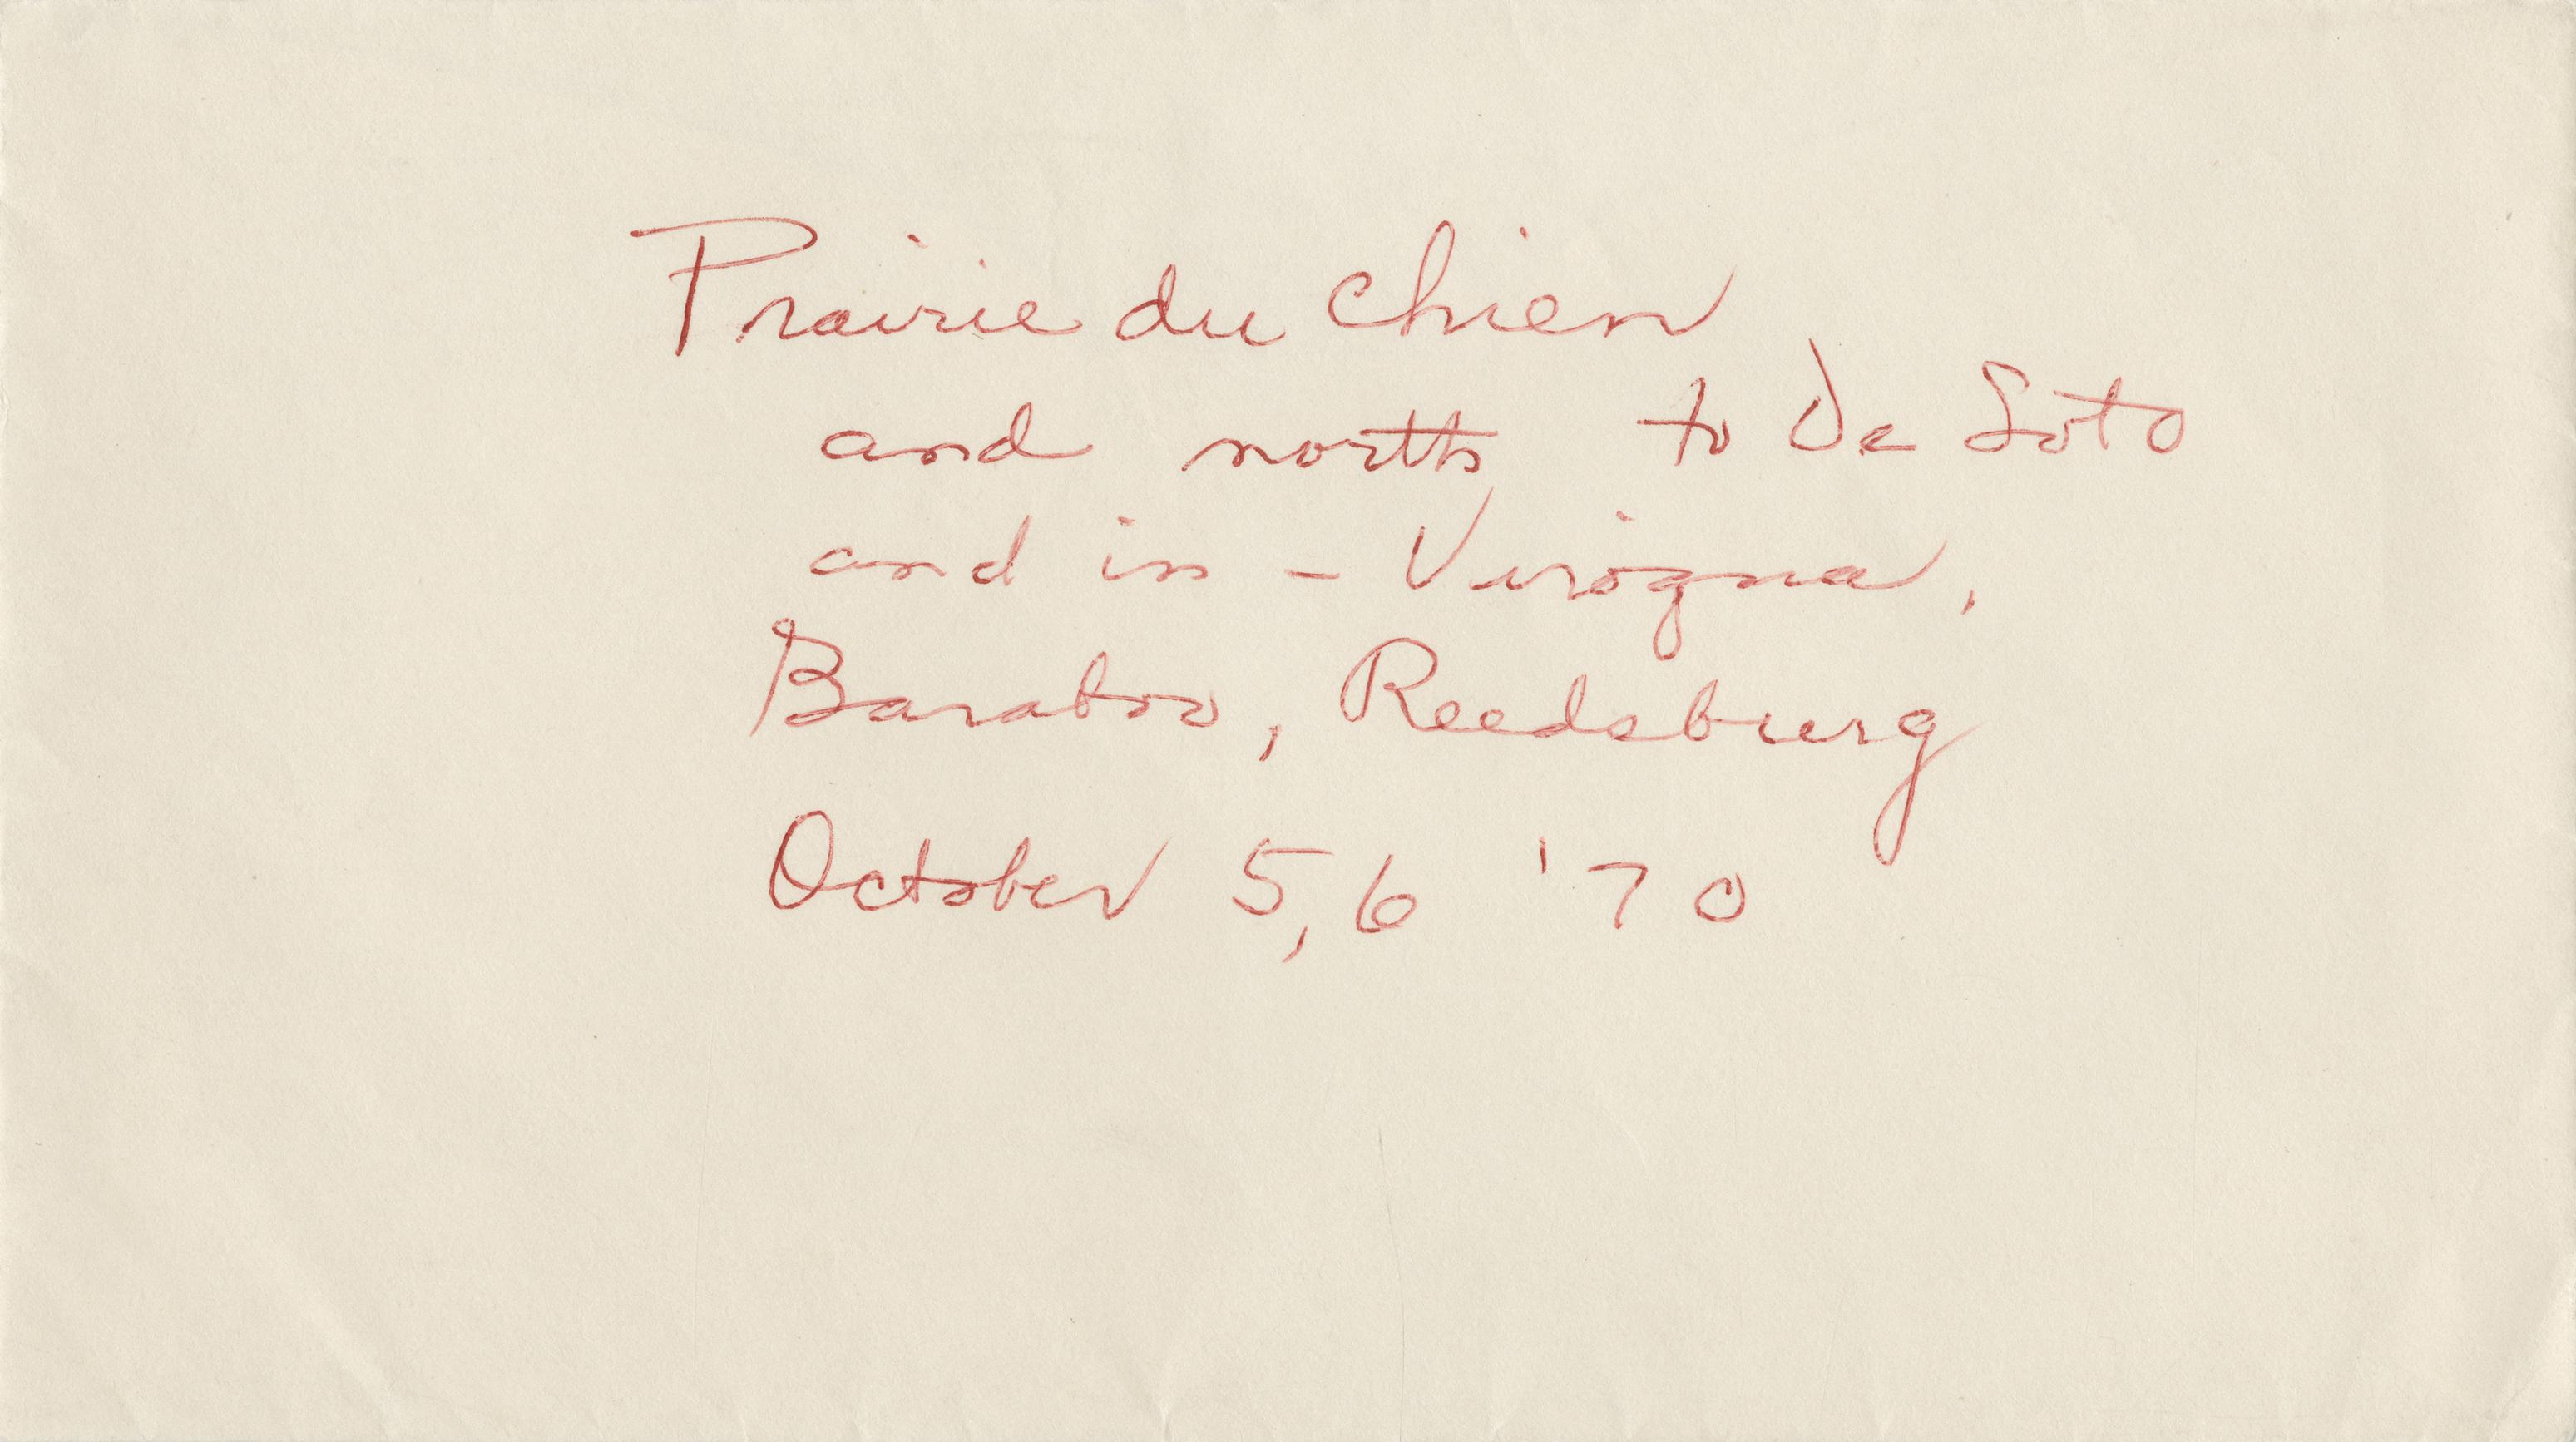 Prairie du Chien
and north to De Soto
and in - Virogna,
Baraboo, Reedsburg
October 5,6 '70